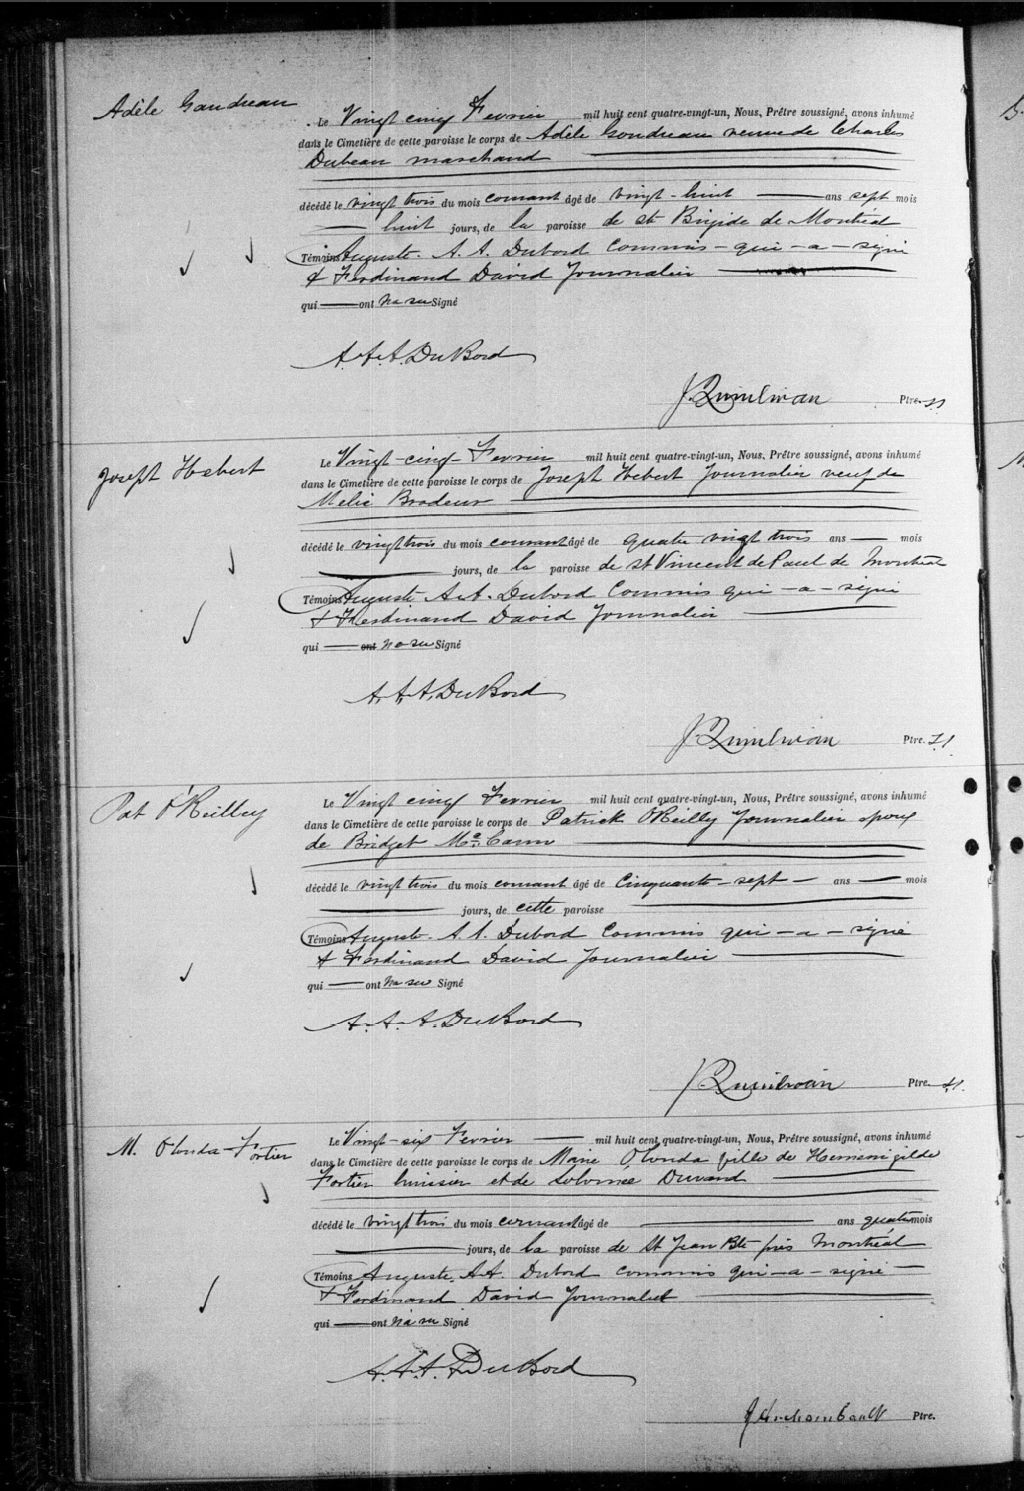 Adèle Gaudreau
Le Vingt cinq Fevrier mil huit cent quatre-vingt-un, Nous, Prêtre soussigné, avons inhumé
dans le Cimetière de cette paroisse le corps de Adèle Goudreau veuve de Charles
Dubeau marchand
décédé le vingt trois du mois courant âgé de vingt-huit ans sept mois
huit jours, de la paroisse de St Brigide de Montréal
Témoins Auguste A. A. Dubord Commis qui-a-signé
& Ferdinand David Journalier
qui ont n'a su Signé
A. A. A. DuBord
Ptre.
Joseph Hebert
Le Vingt-cinq Fevrier mil huit cent quatre-vingt-un, Nous, Prêtre soussigné, avons inhumé
dans le Cimetière de cette paroisse le corps de Joseph Hebert Journalier veuf de
Melie Brodeur
décédé le vingt trois du mois courant âgé de quatre vingt trois ans mois
jours, de la paroisse de St Vincent de Paul de Montréal
Témoins Auguste A. A. Dubord Commis qui-a-signé
& Ferdinand David Journalier
qui ont n'a su Signé
A. A. A. DuBord
Ptre.
Pat O'Reilley
Le Vingt cinq Fevrier mil huit cent quatre-vingt-un, Nous, Prêtre soussigné, avons inhumé
dans le Cimetière de cette paroisse le corps de Patrick O'Reilly Journalier époux
de Bridget McCann
décédé le vingt trois du mois courant âgé de Cinquante-sept ans mois
jours, de cette paroisse
Témoins Auguste A. A. Dubord Commis qui-a-signé
& Ferdinand David Journalier
qui ont n'a su Signé
A. A. A. DuBord
Ptre.
M. Olonda Fortier
Le Vingt-six Fevrier mil huit cent quatre-vingt-un, Nous, Prêtre soussigné, avons inhumé
dans le Cimetière de cette paroisse le corps de Marie Olonda fille de Hemenigilde
Fortier huissier et de Solomee Durand
décédé le vingt trois du mois courant âgé de ans quatre mois
jours, de la paroisse de St Jean Bte près Montréal
Témoins Auguste A. A. Dubord commis qui-a-signé
& Ferdinand David Journalier
qui ont n'a su Signé
A. A. A. DuBord
J Archambault Ptre.